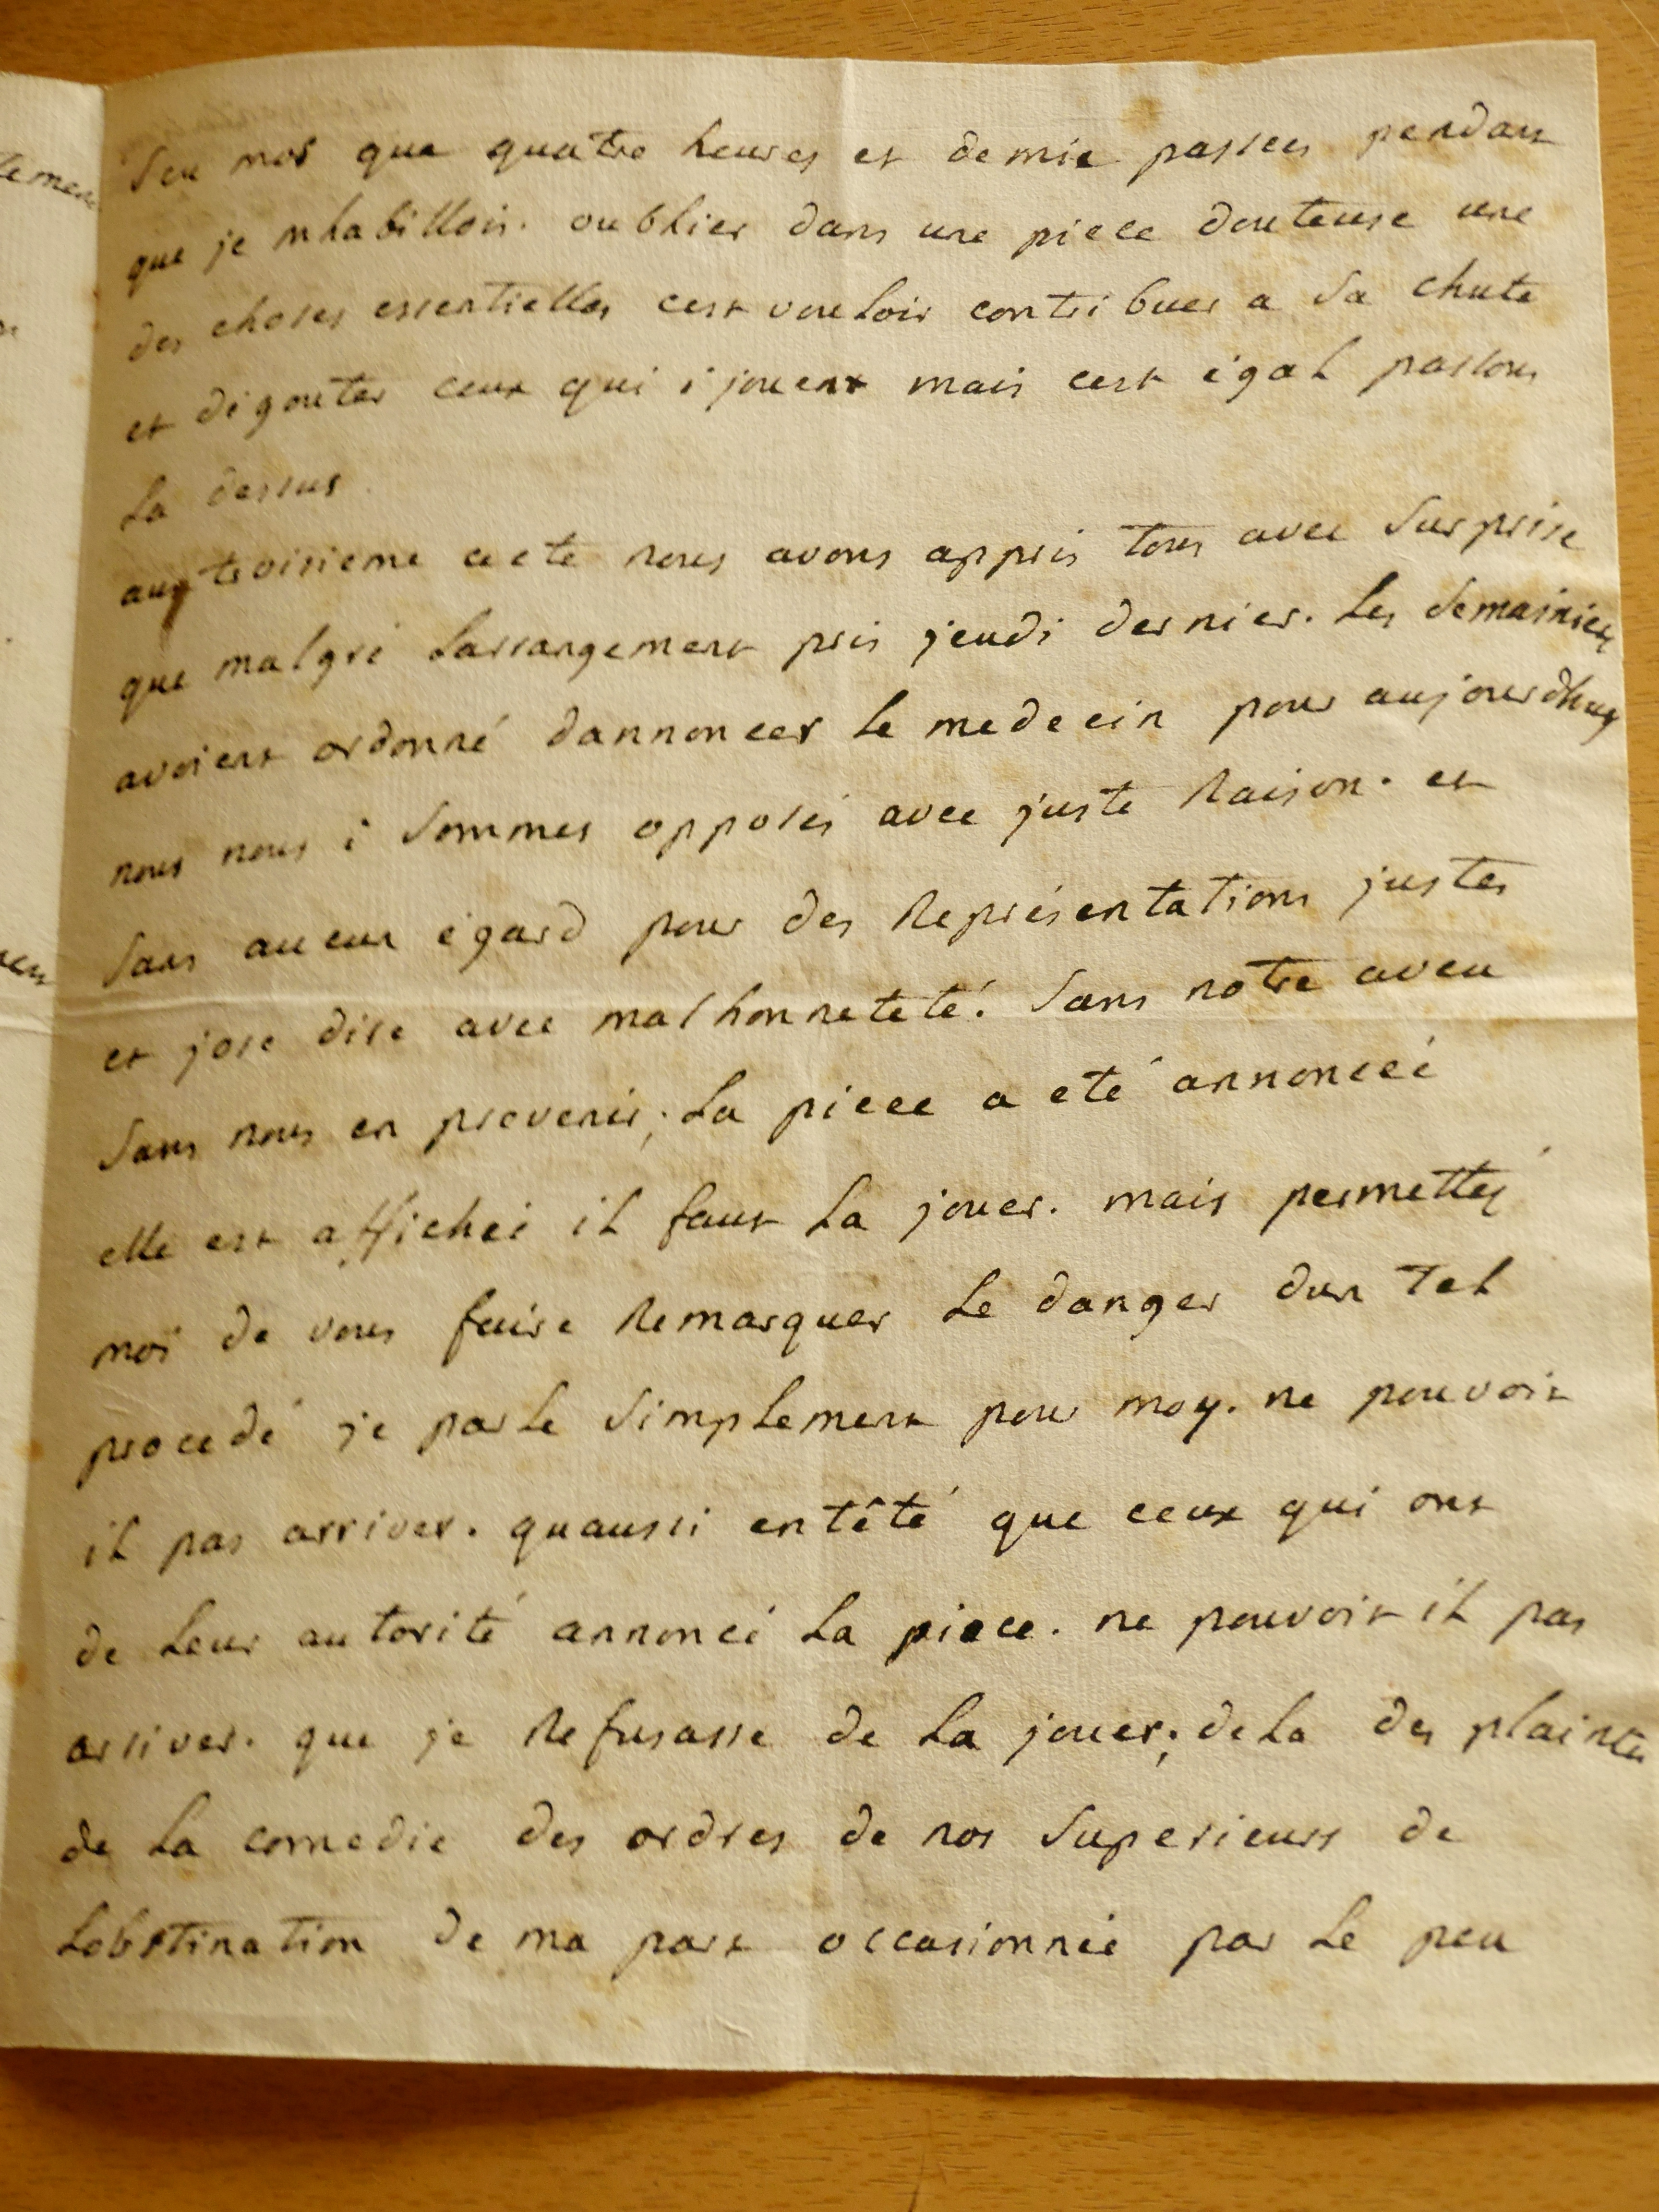 Seu mor que quatre heures et demie passees pendant
que je mhabillois. oublier dans une piece douteuse une
des choses essentielles cest vouloir contribuer a Sa chute
et dégouter ceux qui i jouent mais cest égal passons
La dessus
aux troisieme acte nous avons appris tous avec Surprise
que malgré Larrangement pris jeudi dernier. Les Semainiers
avoient ordonné dannoncer Le medecin pour aujourdhuy
nous nous i Sommes opposés avec juste Raison. et
Sans aucun égard pour des Représentations justes
et jose dire avec malhonneteté. Sans notre aveu
Sans nous en prevenir; La piece a eté annonceé
elle est affichée iL faut La jouer. mais permettés
moi de vous faire Remarquer Le danger dun TeL
procedé je parle Simplement pour moy. ne pouvoit
iL pas arriver. quaussi entêté que ceux qui ont
de Leur autorité annoncé La piece. ne pouvoit iL pas
arriver. que je Refusasse de La jouer; de La des plaintes
de La comedie des ordres de nos Superieurs de
Lobstination de ma part occasionnée par Le peu